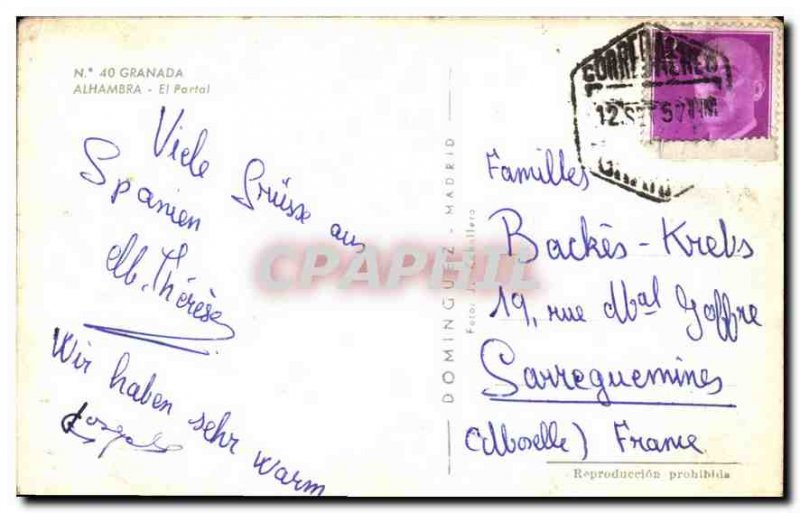 N.° 40 GRANADA
ALHAMBRA - El Partal
Viele Grüsse aus
Spanien
Mb. Thérèse
Wir haben sehr warm
DOMINGUEZ - MADRID
CORREO AEREO
12 S 57
Familles
Backès - Krebs
19, rue Mbal Joffre
Sarreguemines
(Moselle) France
Reproducción prohibida
CPAPHIL